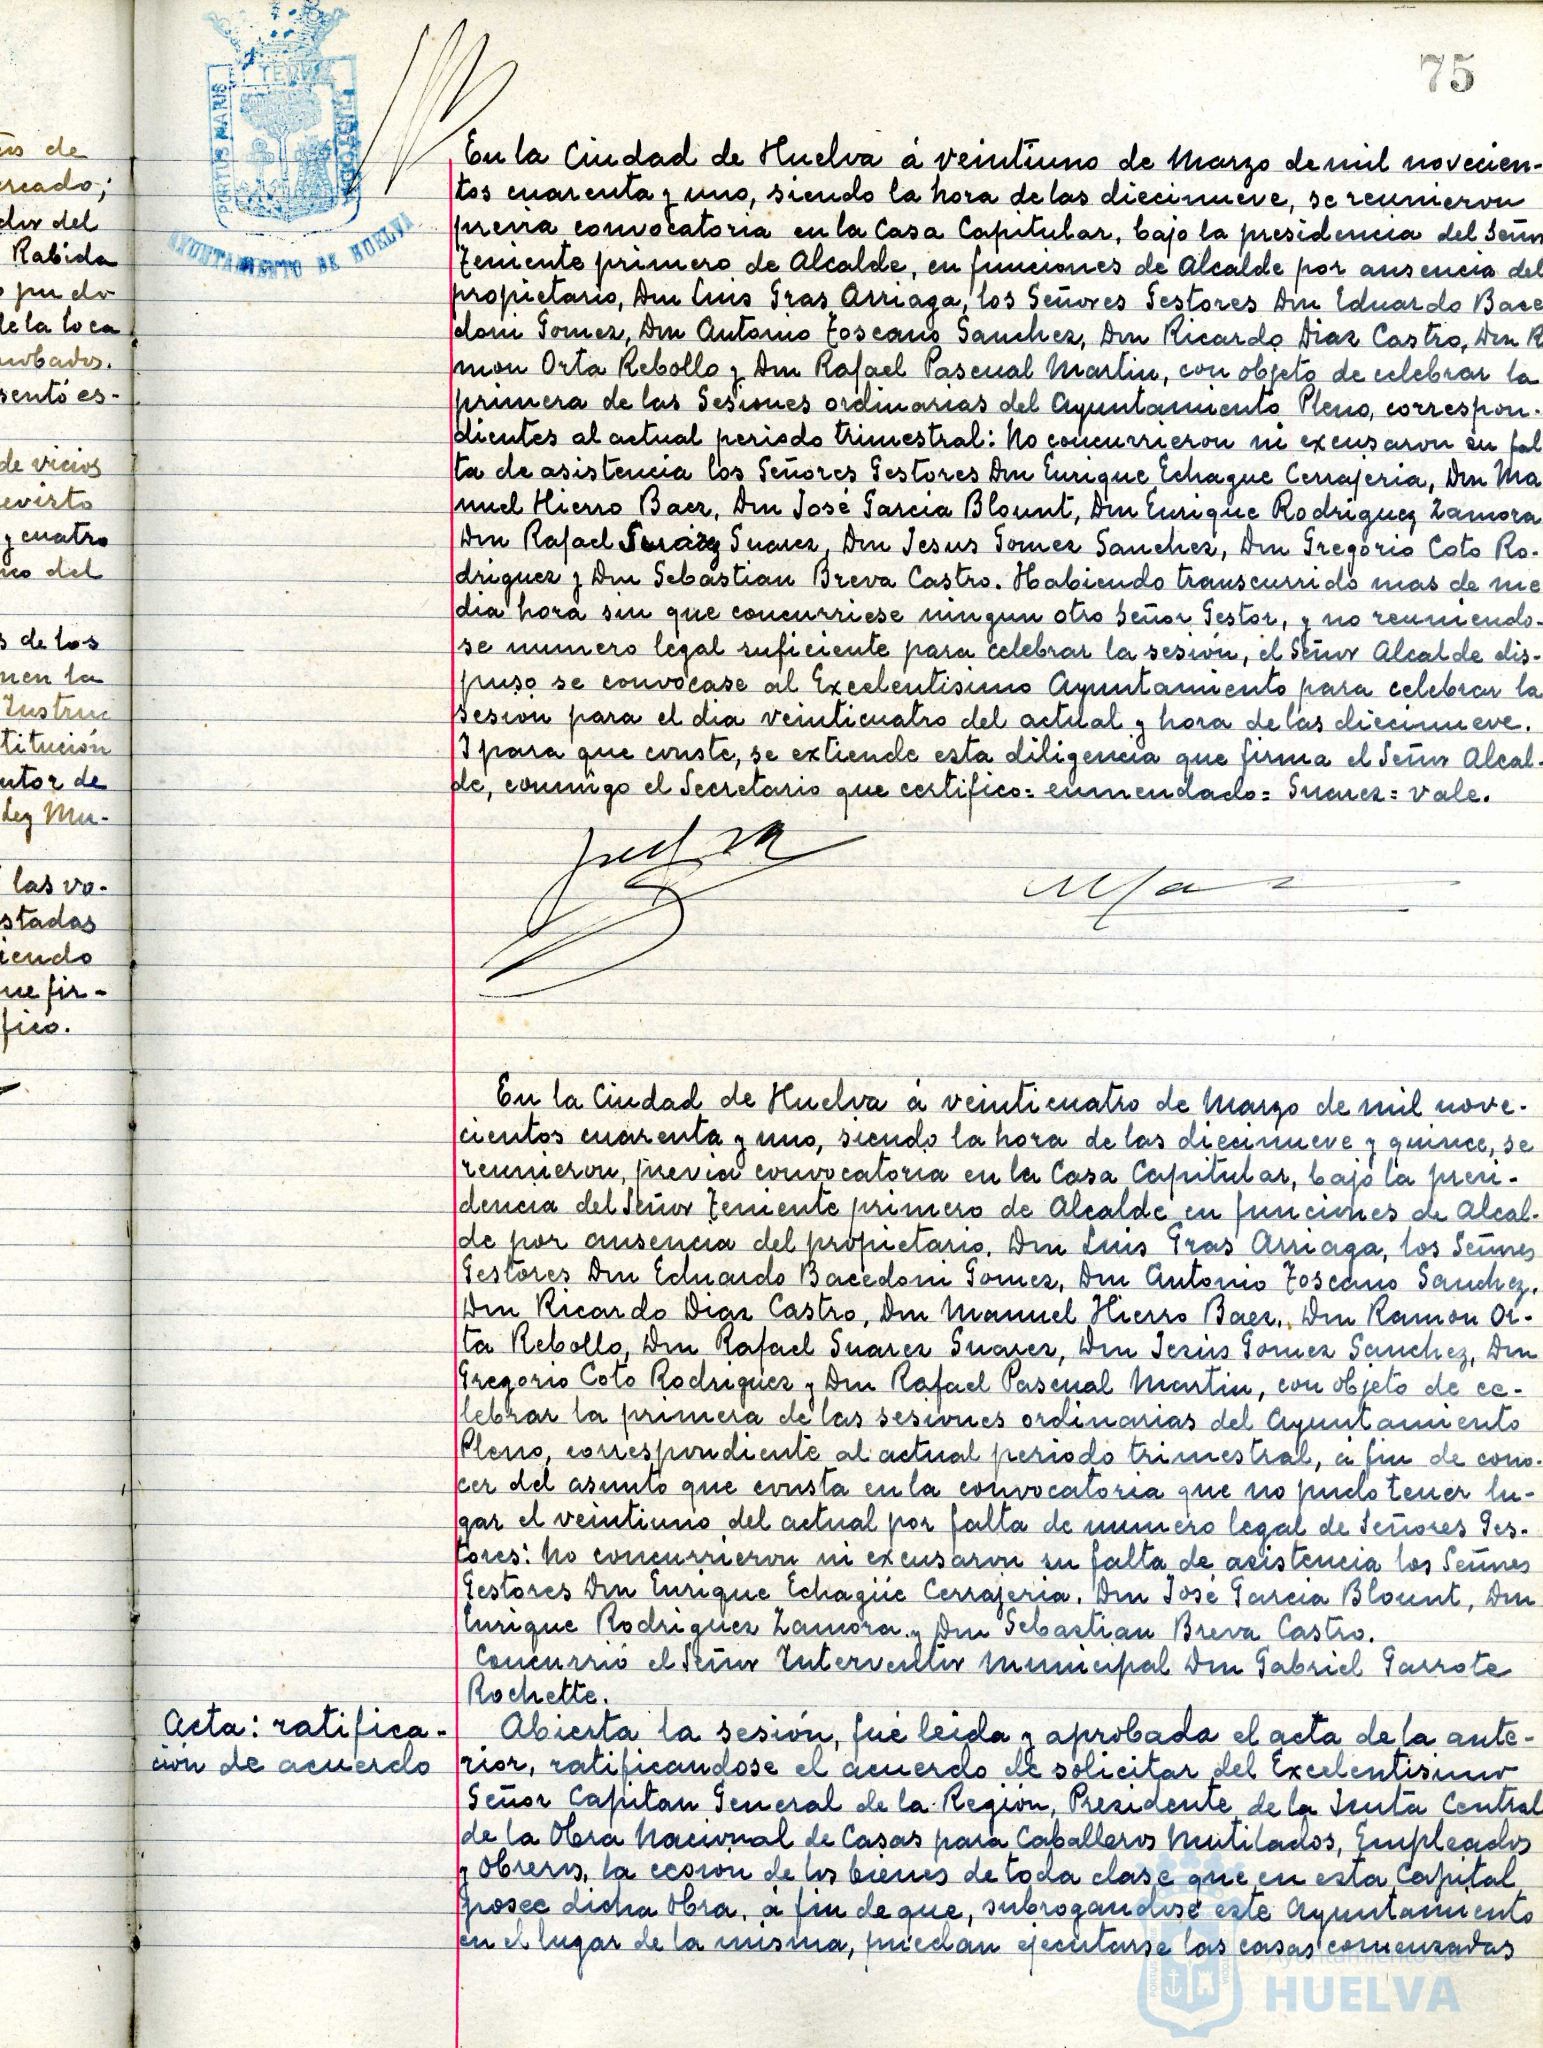 75
PORTUS MARIS ET TERRAE CUSTODIA
AYUNTAMIENTO DE HUELVA
En la Ciudad de Huelva á veintiuno de Marzo de mil novecien-
tos cuarenta y uno, siendo la hora de las diecinueve, se reunieron
previa convocatoria en la Casa Capitular, bajo la presidencia del Señor
Teniente primero de Alcalde, en funciones de Alcalde por ausencia del
propietario, Don Luis Gras Arriaga, los Señores Gestores Don Eduardo Bace
doni Gomez, Don Antonio Toscano Sanchez, Don Ricardo Diaz Castro, Don R
mon Orta Rebollo y Don Rafael Pascual Martin, con objeto de celebrar la
primera de las Sesiones ordinarias del Ayuntamiento Pleno, correspon-
dientes al actual periodo trimestral: No concurrieron ni excusaron su fal
ta de asistencia los Señores Gestores Don Enrique Echague Cerrajeria, Don Ma
nuel Hierro Baez, Don José Garcia Blount, Don Enrique Rodriguez Zamora
Don Rafael Suarez Suarez, Don Jesus Gomez Sanchez, Don Gregorio Coto Ro-
driguez y Don Sebastian Breva Castro. Habiendo transcurrido mas de me
dia hora sin que concurriese ningun otro Señor Gestor, y no reuniendo-
se numero legal suficiente para celebrar la sesión, el Señor Alcalde dis-
puso se convocase al Excelentisimo Ayuntamiento para celebrar la
sesion para el dia veinticuatro del actual y hora de las diecinueve.
I para que conste, se extiende esta diligencia que firma el Señor Alcal-
de, conmigo el Secretario que certifico= enmendado= Suarez= vale.
En la Ciudad de Huelva á veinticuatro de Marzo de mil nove-
cientos cuarenta y uno, siendo la hora de las diecinueve y quince, se
reunieron, previa convocatoria en la Casa Capitular, bajo la presi-
dencia del Señor Teniente primero de Alcalde en funciones de Alcal-
de por ausencia del propietario, Don Luis Gras Arriaga, los Señores
Gestores Don Eduardo Bacedoni Gomez, Don Antonio Toscano Sanchez,
Don Ricardo Diaz Castro, Don Manuel Hierro Baez, Don Ramon Or-
ta Rebollo, Don Rafael Suarez Suarez, Don Jesús Gomez Sanchez, Don
Gregorio Coto Rodriguez y Don Rafael Pascual Martin, con objeto de ce-
lebrar la primera de las sesiones ordinarias del Ayuntamiento
Pleno, correspondiente al actual periodo trimestral, á fin de cono-
cer del asunto que consta en la convocatoria que no pudo tener lu-
gar el veintiuno del actual por falta de numero legal de Señores Ges-
tores: No concurrieron ni excusaron su falta de asistencia los Señores
Gestores Don Enrique Echagüe Cerrajeria, Don José Garcia Blount, Don
Enrique Rodriguez Zamora y Don Sebastian Breva Castro.
Concurrió el Señor Interventor Municipal Don Gabriel Garrote
Rochette.
Acta: ratifica-
ción de acuerdo
Abierta la sesión, fué leida y aprobada el acta de la ante-
rior, ratificandose el acuerdo de solicitar del Excelentisimo
Señor Capitan General de la Región, Presidente de la Junta Central
de la Obra Nacional de Casas para Caballeros Mutilados, Empleados
y Obreros, la cesión de los bienes de toda clase que en esta Capital
posee dicha Obra, á fin de que, subrogandose este Ayuntamiento
en el lugar de la misma, puedan ejecutarse las casas comenzadas
Ayuntamiento de
HUELVA
de
ercado;
del
Rabida
pudo
de la loca
robados.
sentó es-
de vicios
revisto
y cuatro
del
s de los
nen la
Instruc
titución
utor de
Ley Mu-
las vo-
stadas
iendo
ue fir-
fico.